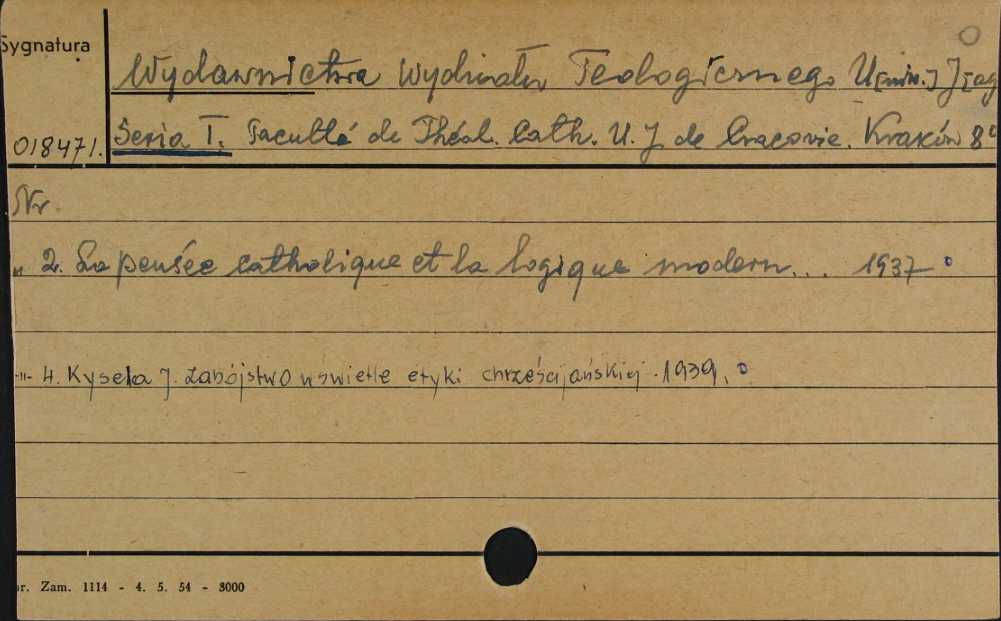 Sygnatura
Wydawnictwa Wydziału Teologicznego U[niw.] J[ag
018471. Seria I. Faculté de Théol. Cath. U. J. de Cracovie. Kraków 8°
Nr.
" 2. La pensée catholique et la logique modern... 1937
-"- 4. Kyseła J. Zabójstwo w świetle etyki chrześcijańskiej. 1939.
r. Zam. 1114 - 4. 5. 54 - 3000